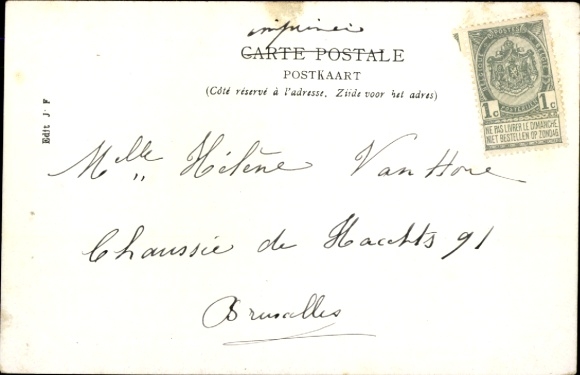 imprimé
CARTE POSTALE
POSTKAART
(Côté réservé à l'adresse. Zijde voor het adres)
Edit J F
1c 1c
NE PAS LIVRER LE DIMANCHE
NIET BESTELLEN OP ZONDAG
Melle Hélène Van Hove
Chaussie de Haechts 91
Bruxelles